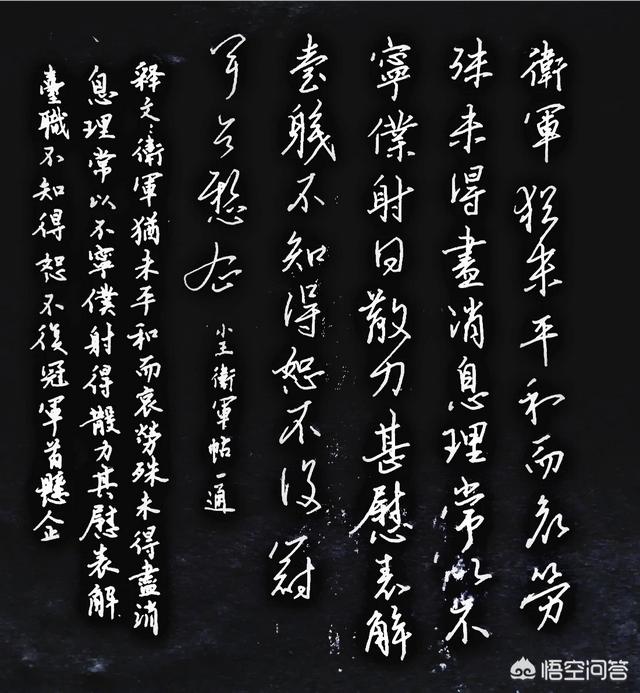 衛軍猶未平和而哀勞
殊未得盡消息理常以不
寧僕射日散力甚慰表解
臺職不知得恕不復冠
軍公懸企
小王衛軍帖一通
释文：衛軍猶未平和而哀勞殊未得盡消
息理常以不寧僕射得散力甚慰表解
臺職不知得恕不復冠軍首懸企
悟空问答